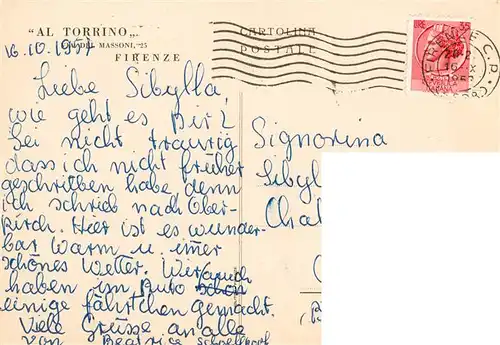 "AL TORRINO„
MASSONI, 25
FIRENZE
CARTOLINA
POSTALE
16.10.1957
Liebe Sibylla,
wie geht es Dir?
Sei nicht traurig
dass ich nicht früher
geschriben habe denn
ich schrieb nach Ober-
kirch. Hier ist es wunder-
bar warm u. imer
schönes Wetter. Wir
haben im Auto schon
einige fährtchen gemacht.
Viele Grüsse an alle
von Beatrice
Signorina
Sibyl
Chal